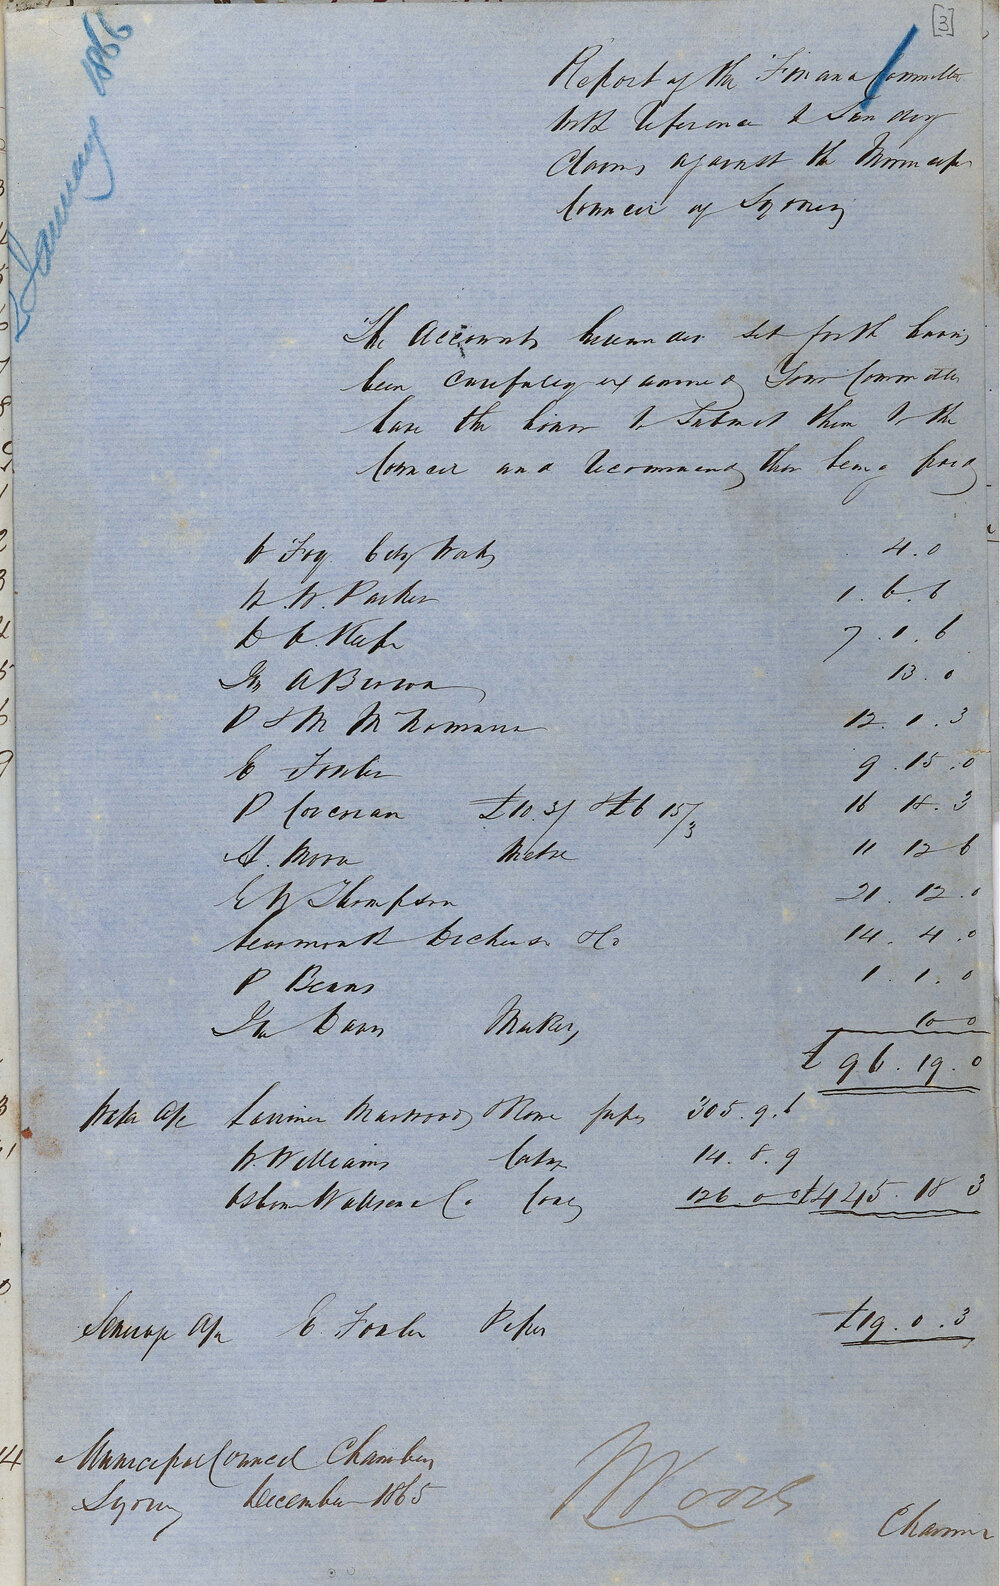 [3]
January 1866
Report of the Finance Committee
with reference to Sundry
Claims against the Municipal
Council of Sydney
The Accounts hereunder set forth having
been carefully examined Your Committee
have the honor to Submit them to the
Council and recommend their being paid
W Fry City Works 4.0
W. W. Parker 1.6.6
D C. Keefe 7.1.6
Jn A Brown 13.0
P & M McNamara 12.1.3
E Fowler 9.15.0
P Corcoran £10.3/ & £6 15/3 16 18.3
A. Moon 11 12 6
E W Thompson 21.12.0
Learmonth Dickinson & Co 14.4.0
P Beans 1.1.0
Jn Davis Markets 10 0
£96.19.0
Water a/c Larrimer Marwood & Rome pipes 305.9.6
W. Williams 14.8.9
Osborn Wallsen & Co Coal 126 0 0 £445.18 3
Sewerage a/c E. Fowler Pipes £19.0.3
Municipal Council Chambers
Sydney December 1865
Chairman